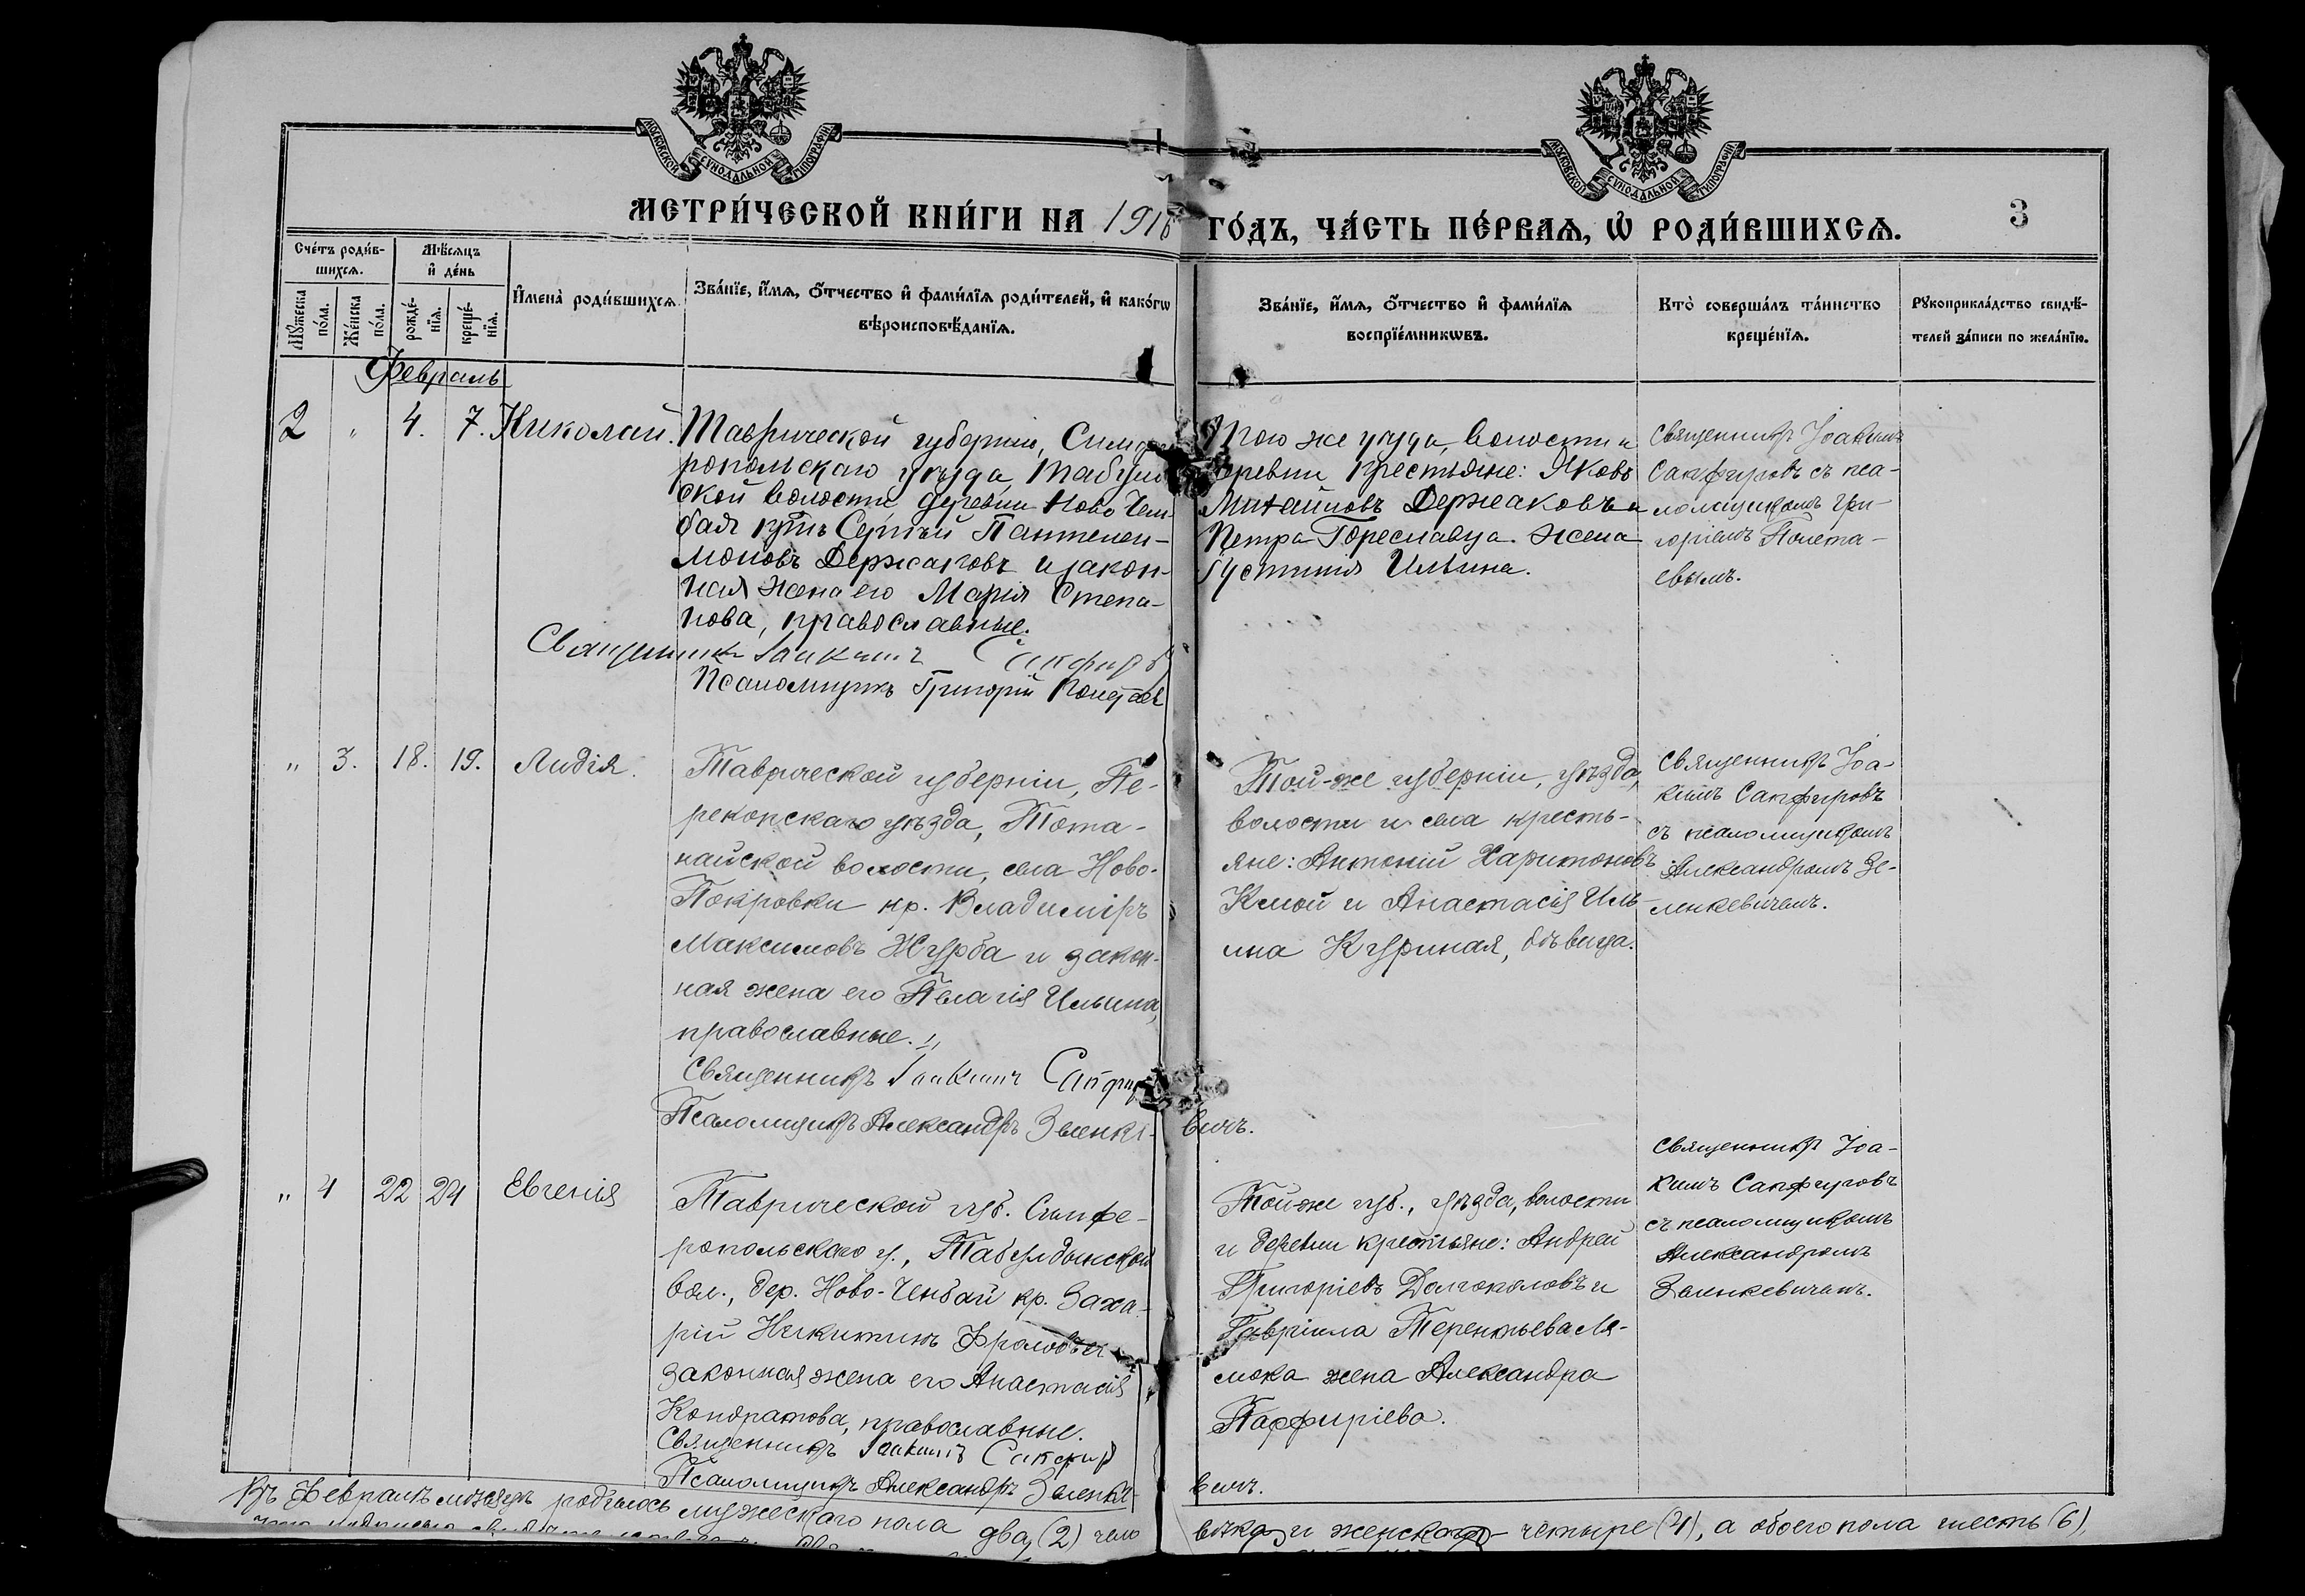 МОСКОВСКОЙ СѴНОДАЛЬНОЙ ТИПОГРАФІИ
МОСКОВСКОЙ СѴНОДАЛЬНОЙ ТИПОГРАФІИ
МЕТРИ́ЧЕСКОЙ КНИ́ГИ НА 1916 ГО́ДЪ, ЧА́СТЬ ПЕ́РВАЯ, Ѡ҆ РОДИ́ВШИХСЯ.
3
Сче́тъ роди́в-
шихся.
Мѣ́сяцъ
и҆ де́нь
Мꙋ́жеска
по́ла.
Же́нска
по́ла.
рожде́-
нїя.
креще́-
нїя.
И҆мена̀ роди́вшихся.
Зва́нїе, и҆́мя, ѻ҆́тчество и҆ фами́лїя роди́телей, и҆ како́гѡ
вѣроисповѣ́данїя.
Зва́нїе, и҆́мя, ѻ҆́тчество и҆ фами́лїя
воспрїе́мникѡвъ.
Кто̀ соверша́лъ та́инство
креще́нїя.
Рꙋкоприкла́дство свидѣ́-
телей за́писи по жела́нїю.
Февраль
2 " 4. 7. Николай.
Таврической губерніи, Симфе-
ропольскаго уѣзда, Табулд
ской волости деревни Ново Чем-
бай кр-нъ Сергѣй Пантелей-
моновъ Держаковъ и закон-
ная жена его Марія Степа-
нова, православные.
Священникъ Іоакимъ Сапфировъ
Псаломщикъ Григорій Полетаев
Того же уѣзда, волости и
деревни крестьяне: Яковъ
Михайловъ Держаковъ и
Петра Гореславца жена
Устинія Ильина.
Священникъ Іоакимъ
Сапфировъ съ пса-
ломщикомъ Гри-
горіемъ Полета-
евымъ.
" 3. 18. 19. Лидія.
Таврической губерніи, Пе-
рекопскаго уѣзда, Тота-
найской волости, села Ново-
Покровки кр. Владиміръ
Максимовъ Журба и закон-
ная жена его Пелагія Ильина,
православные.
Священникъ Іоакимъ Сапфир
Псаломщикъ Александръ Зеленке-
вичъ.
Той-же губерніи, уѣзда,
волости и села кресть-
яне: Антоній Харитоновъ
Кмой и Анастасія Иль-
ина Куриная, дѣвица.
Священникъ Іоа-
кимъ Сапфировъ
съ псаломщикомъ
Александромъ Зе-
ленкевичемъ.
" 4 22 24 Евгенія
Таврической губ. Симфе-
ропольскаго у., Табулдынской
вол., дер. Ново-Ченбай кр. Заха-
рій Никитинъ Фроловъ и
законная жена его Анастасія
Кондратова, православные.
Священникъ Іоакимъ Сапфир
Псаломщикъ Александръ Зеленке-
вичъ.
Той-же губ., уѣзда, волости
и деревни крестьяне: Андрей
Григоріевъ Долгополовъ и
Гавріила Терентьева Ля-
мока жена Александра
Парфиріева.
Священникъ Іоа-
кимъ Сапфировъ
съ псаломщикомъ
Александромъ
Зеленкевичемъ.
Въ Февралѣ мѣсяцѣ родилось мужескаго пола два (2) чело
вѣка и женскаго – четыре (4), а обоего пола шесть (6),